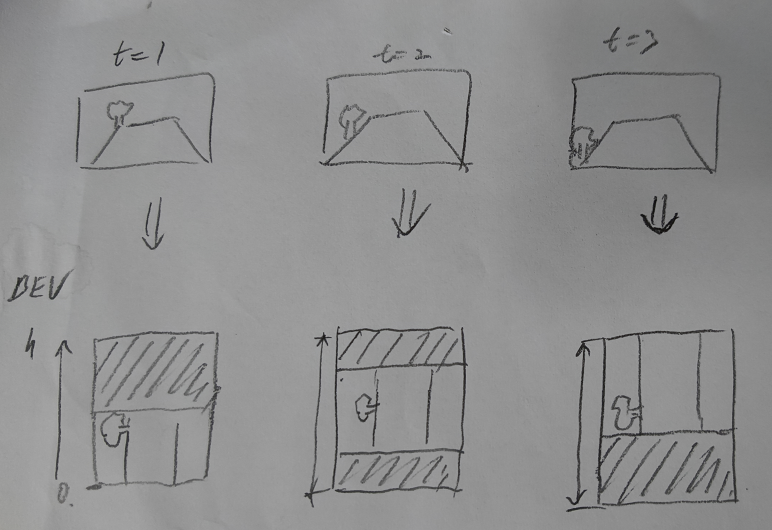 t=1 t=2 t=3
BEV
h
0.